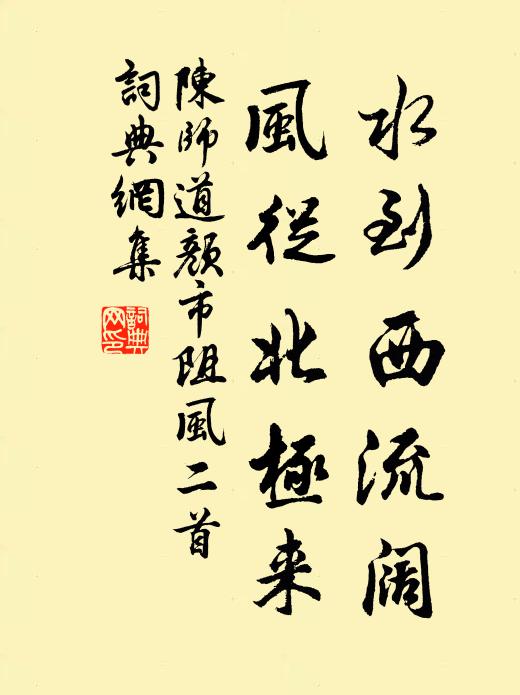 水到西流阔
風從北極来
陳師道顔市阻風二首
詞典網集
詞典
网印